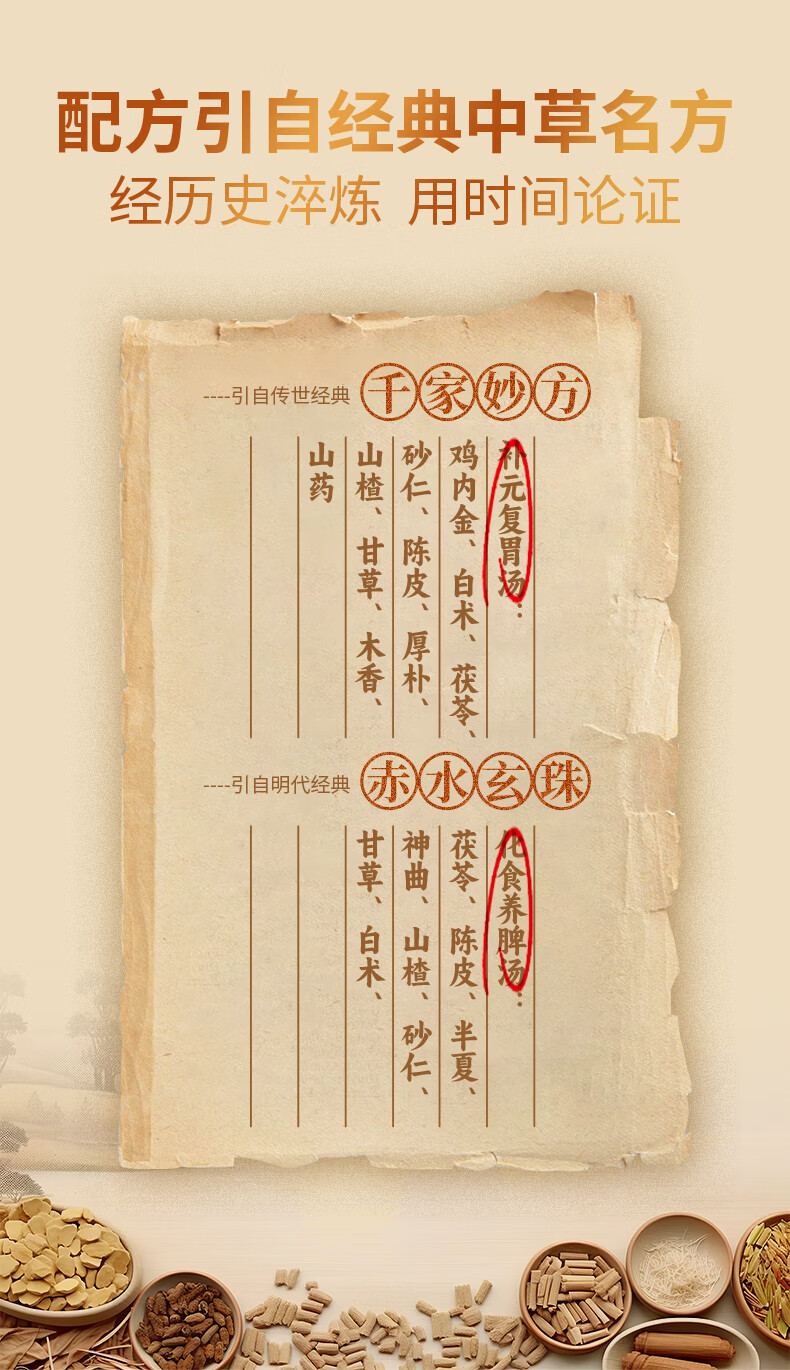 配方引自经典中草名方
经历史淬炼 用时间论证
----引自传世经典 千家妙方
补元复胃汤：
鸡内金、白术、茯苓、
砂仁、陈皮、厚朴、
山楂、甘草、木香、
山药
----引自明代经典 赤水玄珠
化食养脾汤：
茯苓、陈皮、半夏、
神曲、山楂、砂仁、
甘草、白术、